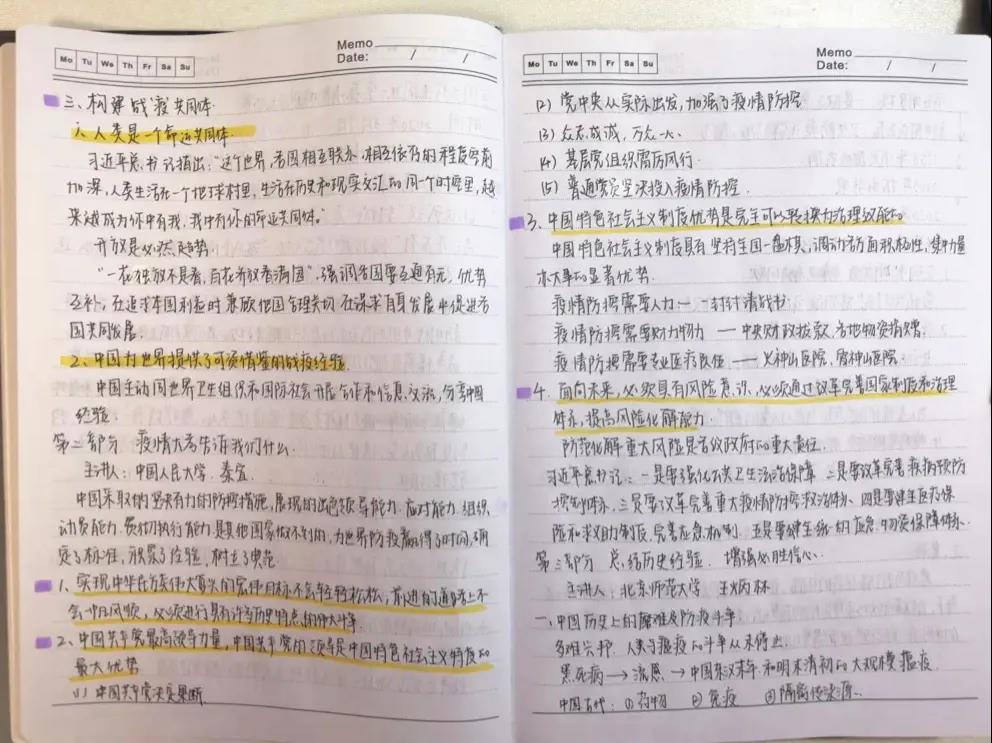 Memo
Mo Tu We Th Fr Sa Su
Date: / /
三、构建战"疫"共同体.
1、人类是一个命运共同体.
习近平总书记指出:"这个世界,各国相互联系、相互依存的程度空前
加深,人类生活在一个地球村里,生活在历史和现实交汇的同一个时空里,越
来越成为你中有我,我中有你的命运共同体."
开放是必然趋势
"一花独放不是春,百花齐放春满园",强调各国要互通有无,优势
互补,在追求本国利益时兼顾他国合理关切.在谋求自身发展中促进各
国共同发展.
2、中国为世界提供了可资借鉴的战疫经验.
中国主动同世界卫生组织和国际社会开展合作和信息交流,分享中国
经验.
第二部分 疫情大考告诉我们什么.
主讲人:中国人民大学 秦宣.
中国采取的坚决有力的防控措施,展现的出色领导能力.应对能力.组织
动员能力.贯彻执行能力是其他国家做不到的,为世界防疫赢得了时间,确
定了标准,积累了经验,树立了典范.
1、实现中华民族伟大复兴的宏伟目标不会轻轻松松,前进的道路上不
会一帆风顺,必须进行具有许多历史特点的伟大斗争.
2、中国共产党最高领导力量,中国共产党的领导是中国特色社会主义制度的
最大优势
(1)中国共产党决策果断.
Memo
Mo Tu We Th Fr Sa Su
Date: / /
(2)党中央从实际出发,加强了疫情防控
(3)众志成诚,万众一心.
(4)基层党组织雷厉风行.
(5)普通党员坚决投入疫情防控.
3、中国特色社会主义制度优势是完全可以转换为治理效能的
中国特色社会主义制度具有坚持全国一盘棋,调动各方面积极性,集中力量
办大事的显著优势.
疫情防控需要人力一一一封封请战书
疫情防控需要财力物力 — 中央财政拨款,各地物资捐赠.
疫情防控需要专业医疗医院 — 火神山医院,雷神山医院.
4、面向未来,必须具有风险意识,必须通过改革完善国家制度和治理
体系,提高风险化解能力.
防范化解重大风险是各级政府的重大责任.
习近平总书记:一是要强化公共卫生法治保障 二是要改革完善疾病预防
控制体系,三是要改革完善重大疫情防控救治体系.四是要健全医疗保
险和求助制度,完善应急机制.五是要健全统一的应急物资保障体系.
第三部分 总结历史经验 增强必胜信心.
主讲人:北京师范大学 王炳林
一、中国历史上的磨难及防疫斗争
多难兴邦 人类与瘟疫的斗争从未停止.
黑死病→流感→中国东汉末年和明末清初的大规模瘟疫.
中国古代:①药物 ②免疫 ③隔离传染源.